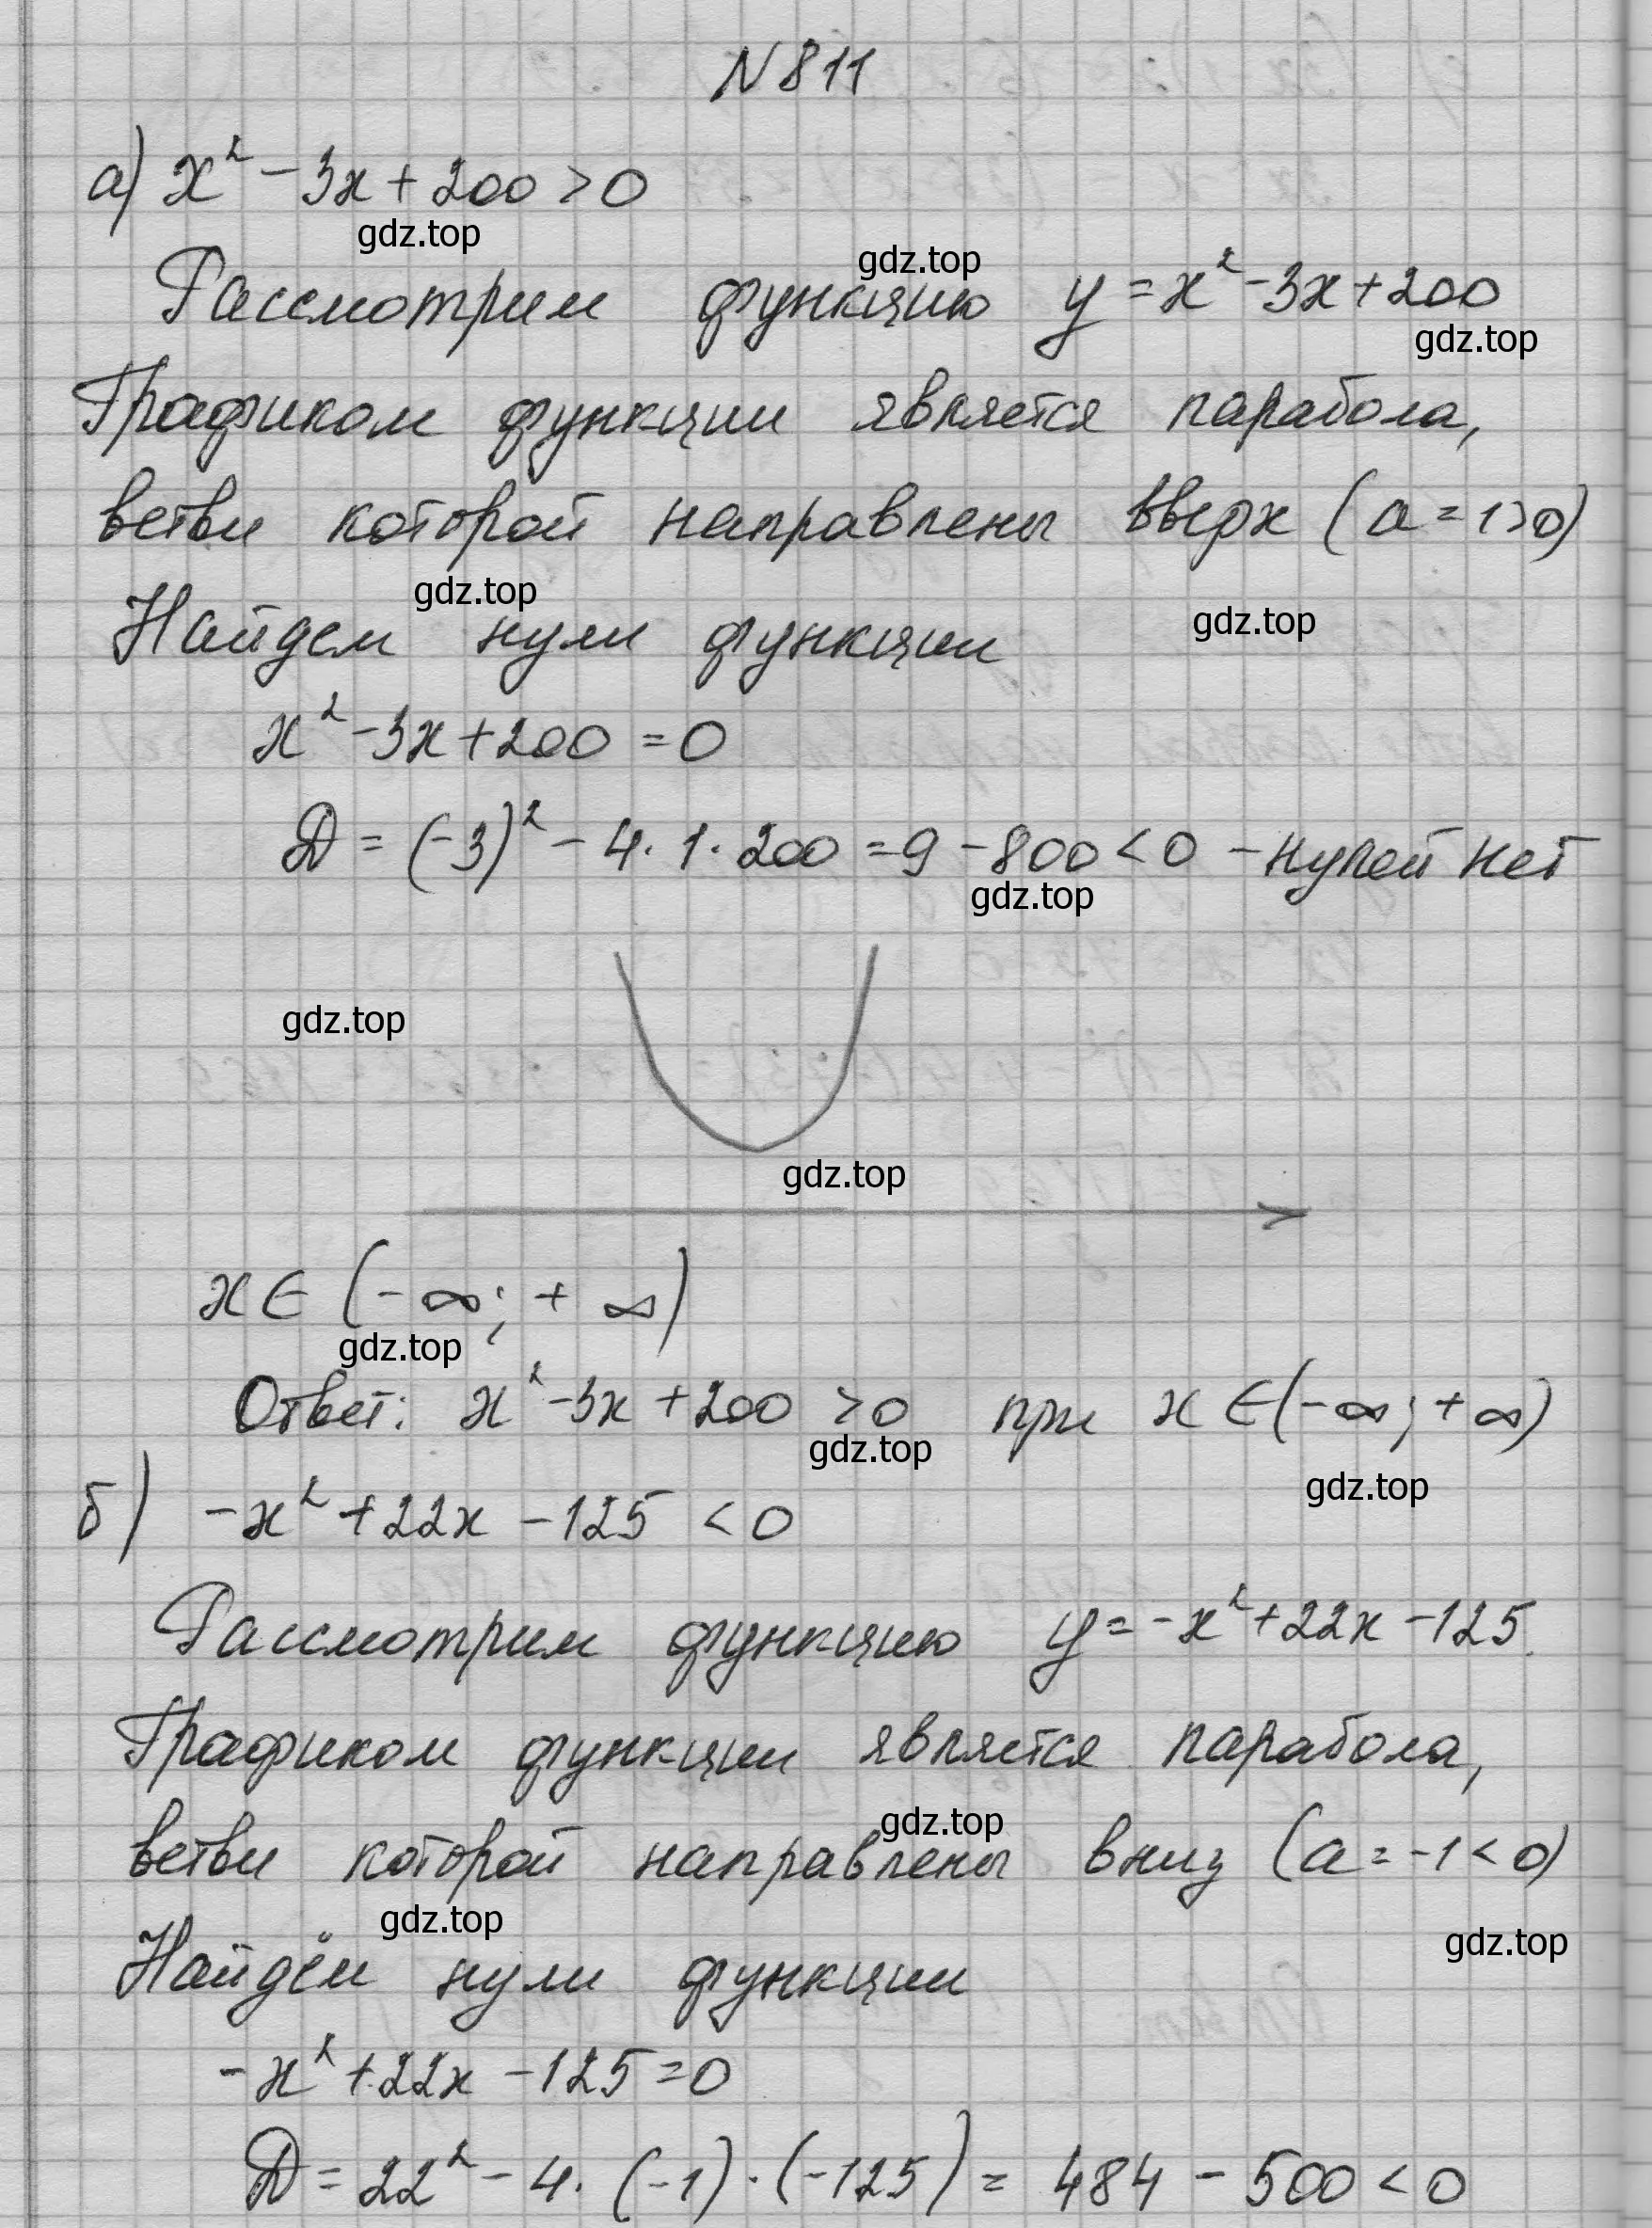 N 811
а) x² - 3x + 200 > 0
gdz.top
gdz.top
Рассмотрим функцию y = x² - 3x + 200
gdz.top
Графиком функции является парабола,
ветви которой направлены вверх (a = 1 > 0)
gdz.top
gdz.top
Найдем нули функции
x² - 3x + 200 = 0
D = (-3)² - 4 · 1 · 200 = 9 - 800 < 0 - нулей нет
gdz.top
gdz.top
gdz.top
x ∈ (-∞; + ∞)
gdz.top
Ответ: x² - 3x + 200 > 0 при x ∈ (-∞; + ∞)
gdz.top
gdz.top
б) -x² + 22x - 125 < 0
Рассмотрим функцию y = -x² + 22x - 125.
Графиком функции является парабола,
gdz.top
ветви которой направлены вниз (a = -1 < 0)
gdz.top
gdz.top
Найдём нули функции
-x² + 22x - 125 = 0
D = 22² - 4 · (-1) · (-125) = 484 - 500 < 0